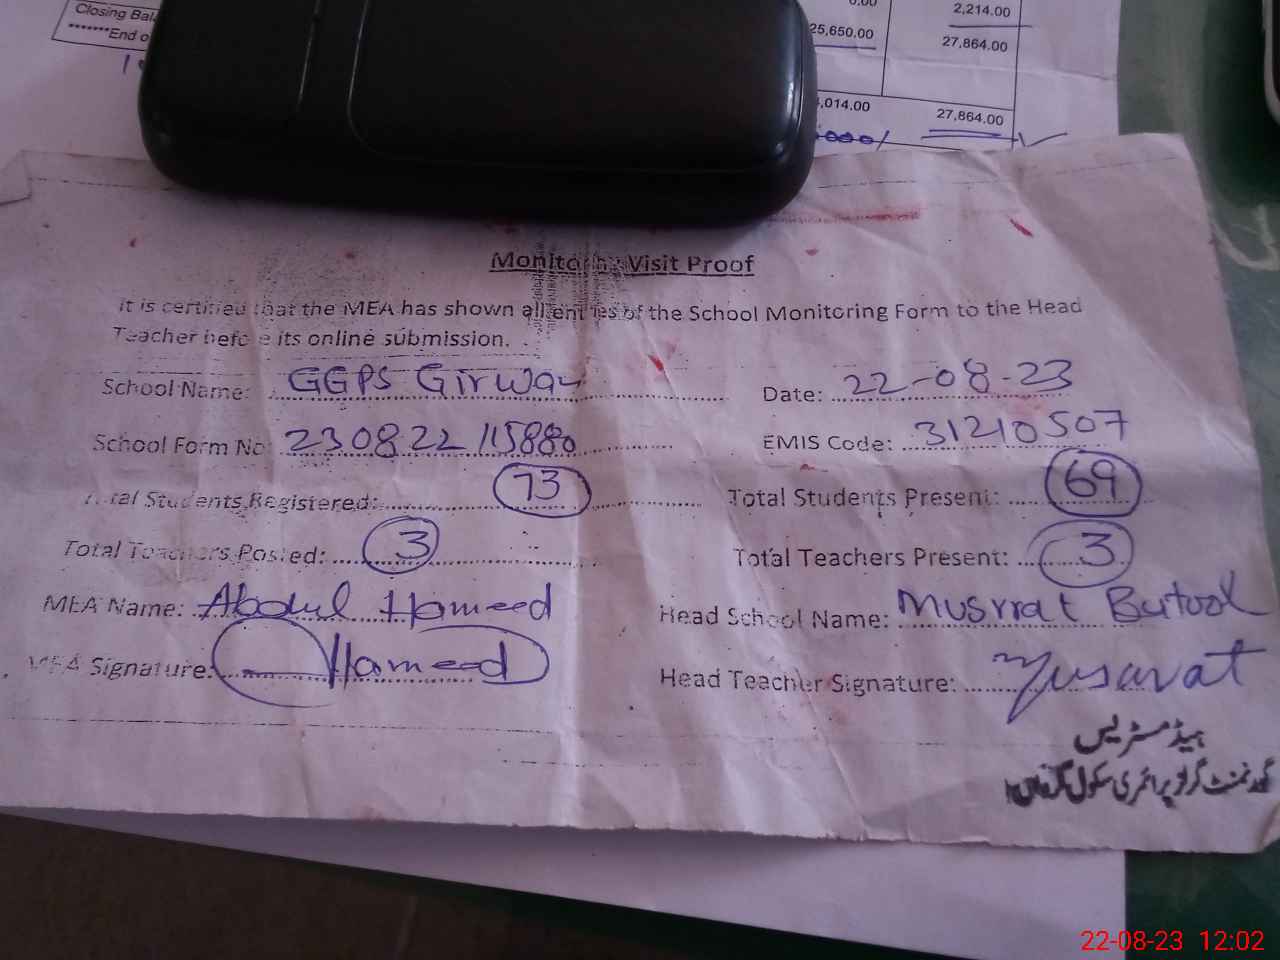 Closing Bal
*******End o
0.00 2,214.00
25,650.00 27,864.00
,014.00 27,864.00
Monitoring Visit Proof
It is certified that the MEA has shown all entries of the School Monitoring Form to the Head
Teacher before its online submission.
School Name: GGPS Girway Date: 22-08-23
School Form No: 230822115880 EMIS Code: 31210507
Total Students Registered: 73 Total Students Present: 69
Total Teachers Posted: 3 Total Teachers Present: 3
MEA Name: Abdul Hameed Head School Name: Musrrat Butool
MEA Signature: Hameed Head Teacher Signature: Musarat
ہیڈ مسٹریس
گورنمنٹ گرلز پرائمری سکول
22-08-23 12:02